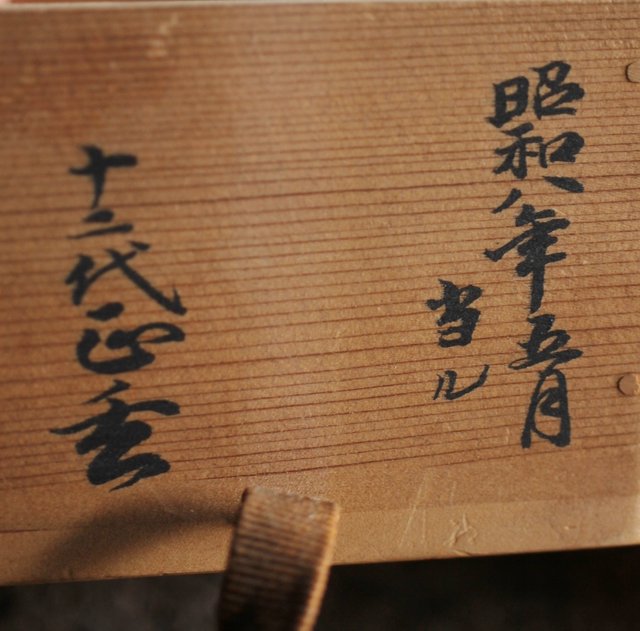 昭和八年五月
当ル
十二代正香